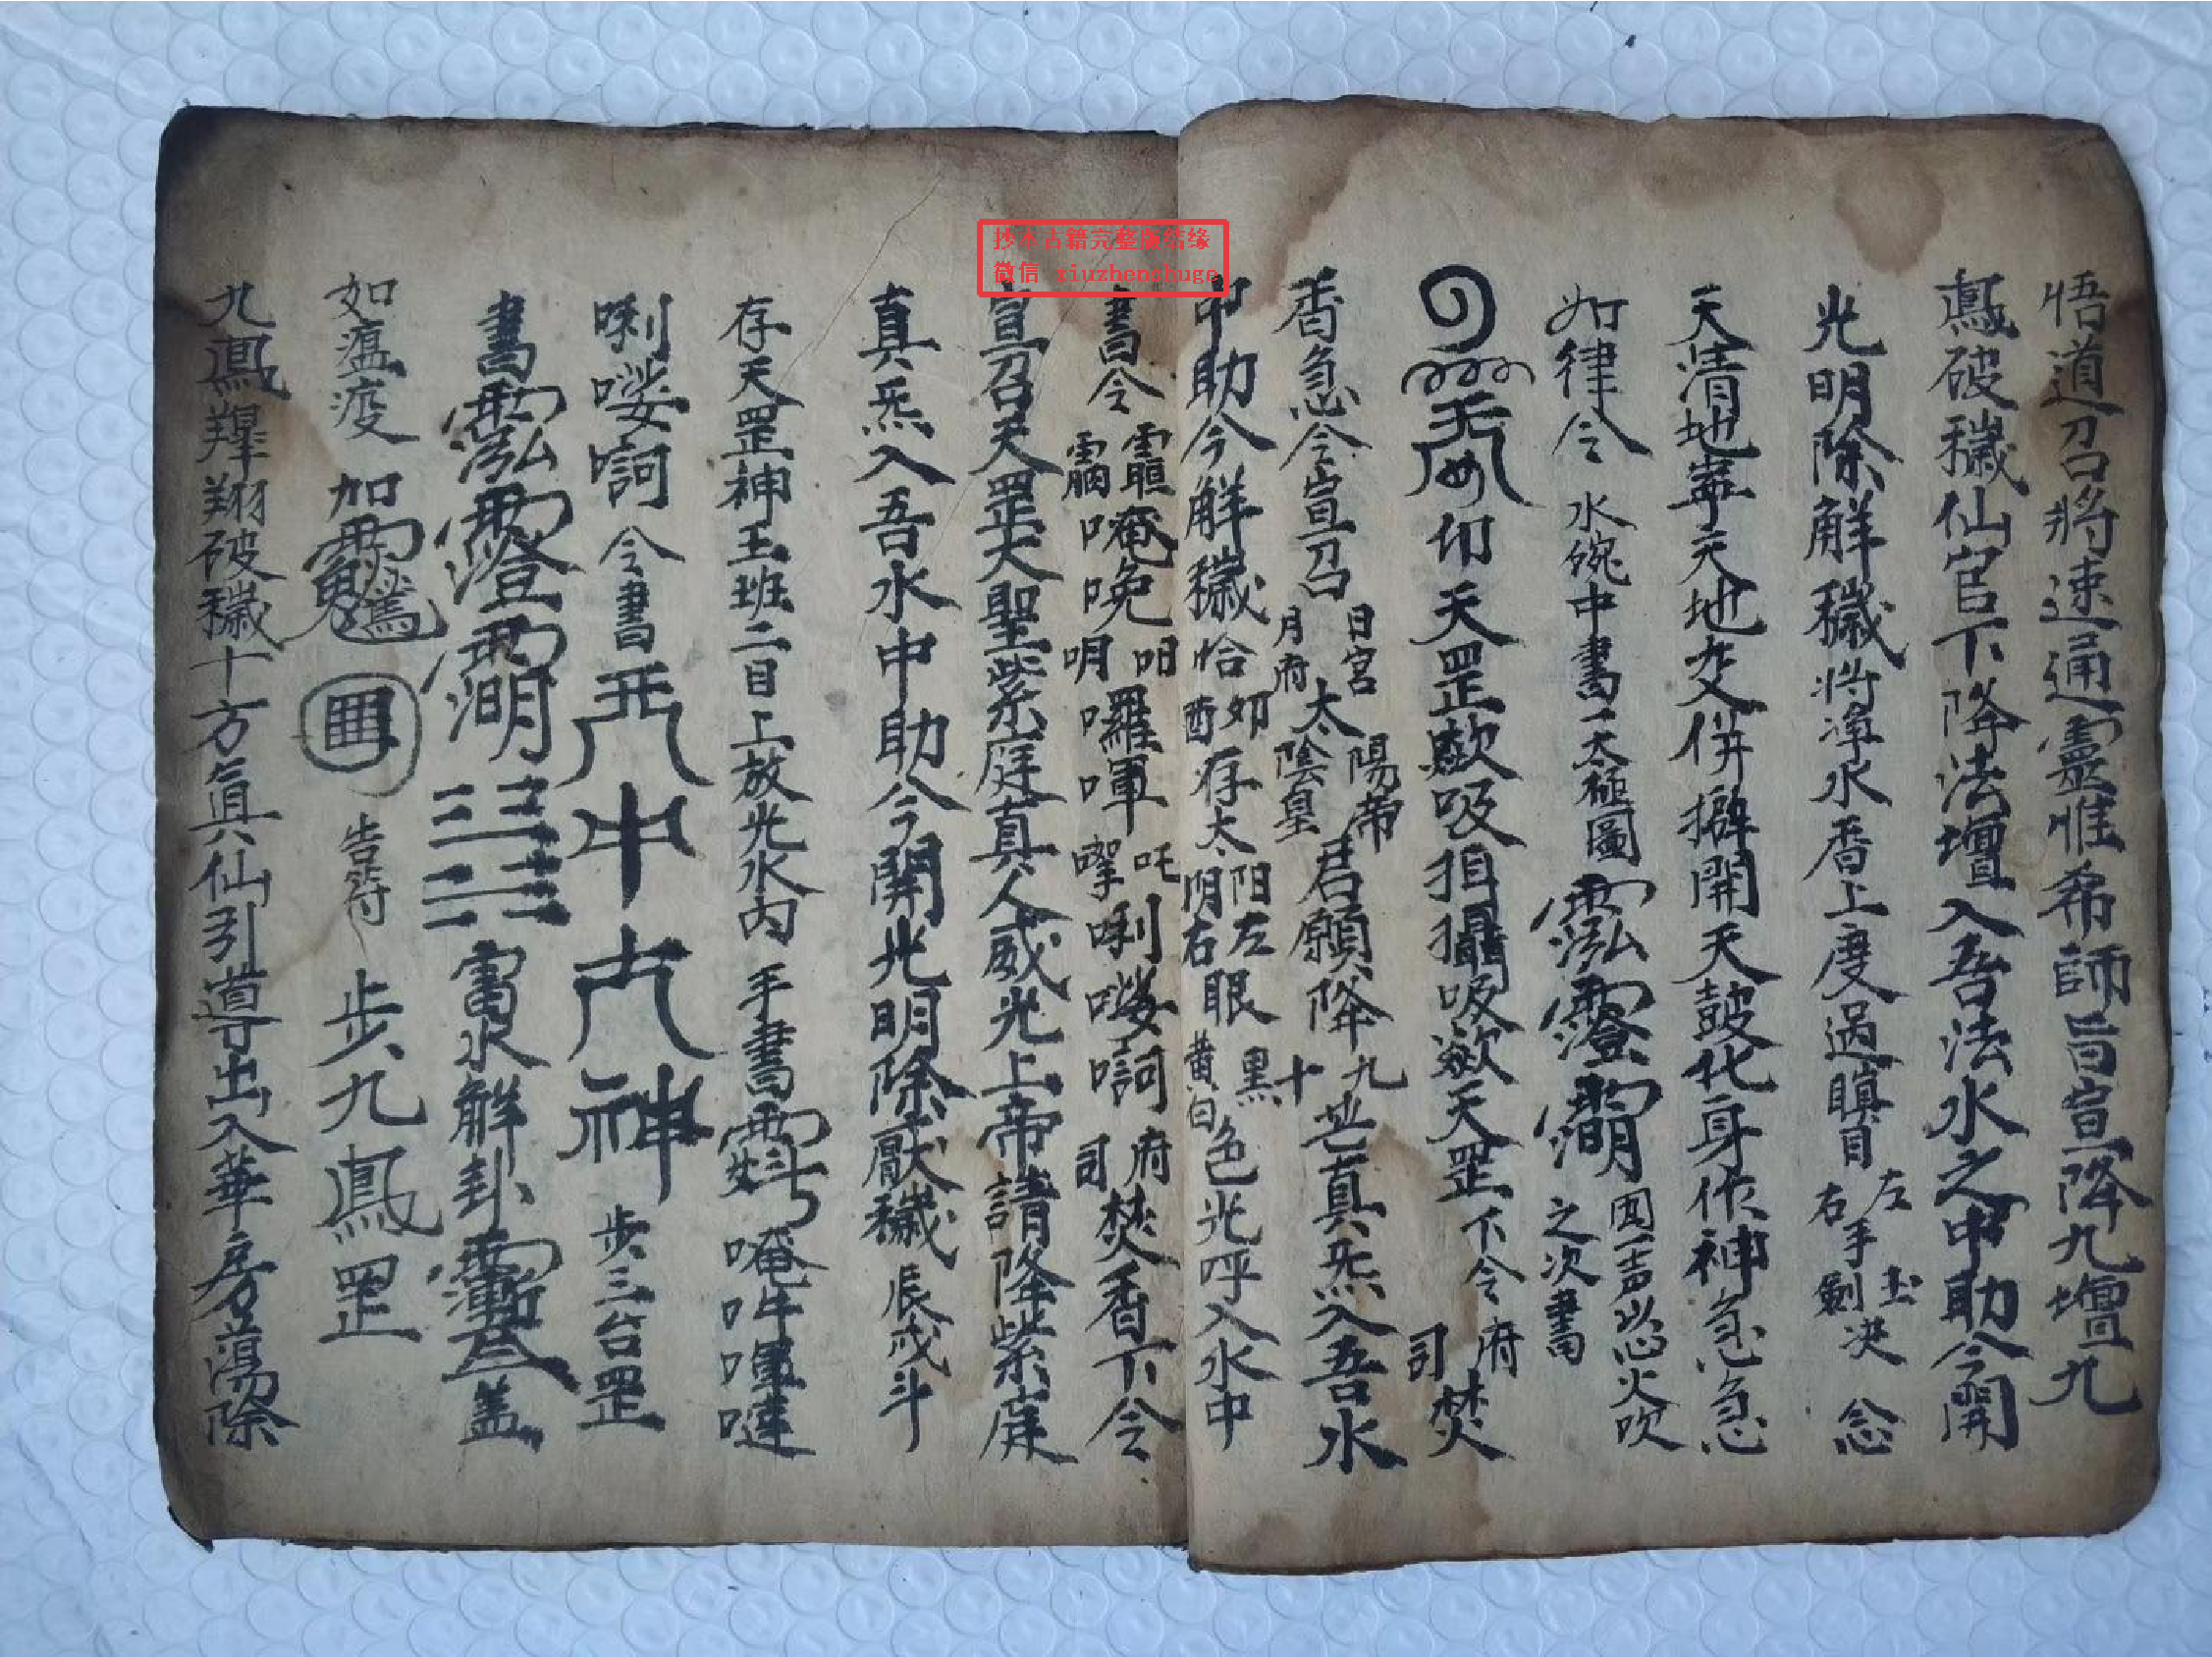 抄本古籍完整版结缘
微信 xiuzhenghuge
悟道召將速通靈惟希師旨宣降九壇九
鳳破穢仙官下降法壇入吾法水之中助今開
光明除解穢将净水香上度過瞋目左右手玉剣决念
天清地寧天地交併擗開天鼓化身作神急急
如律令水碗中書一太極圖之次書
仰天罡歙吸天罡下令府司焚
香急令宣召日宮月府太陽帝太陰皇君願降九十芒真炁入吾水
中助今解穢存太阳左太阴右眼黑黄白色光呼入水中
書令唵㕙囉㖮唎嘙訶府司焚香下令
宣召天罡大聖紫庭真人威光上帝請降紫庭
真炁入吾水中助今開光明除厭穢辰戌斗
存天罡神王班二目上放光水内手書唵吽㖮噠
唎嘙訶令書神步三台罡
書水解卦蓋
如瘟疫加告符步九鳳罡
九鳳翱翔破穢十方真仙引導出入華房蕩除